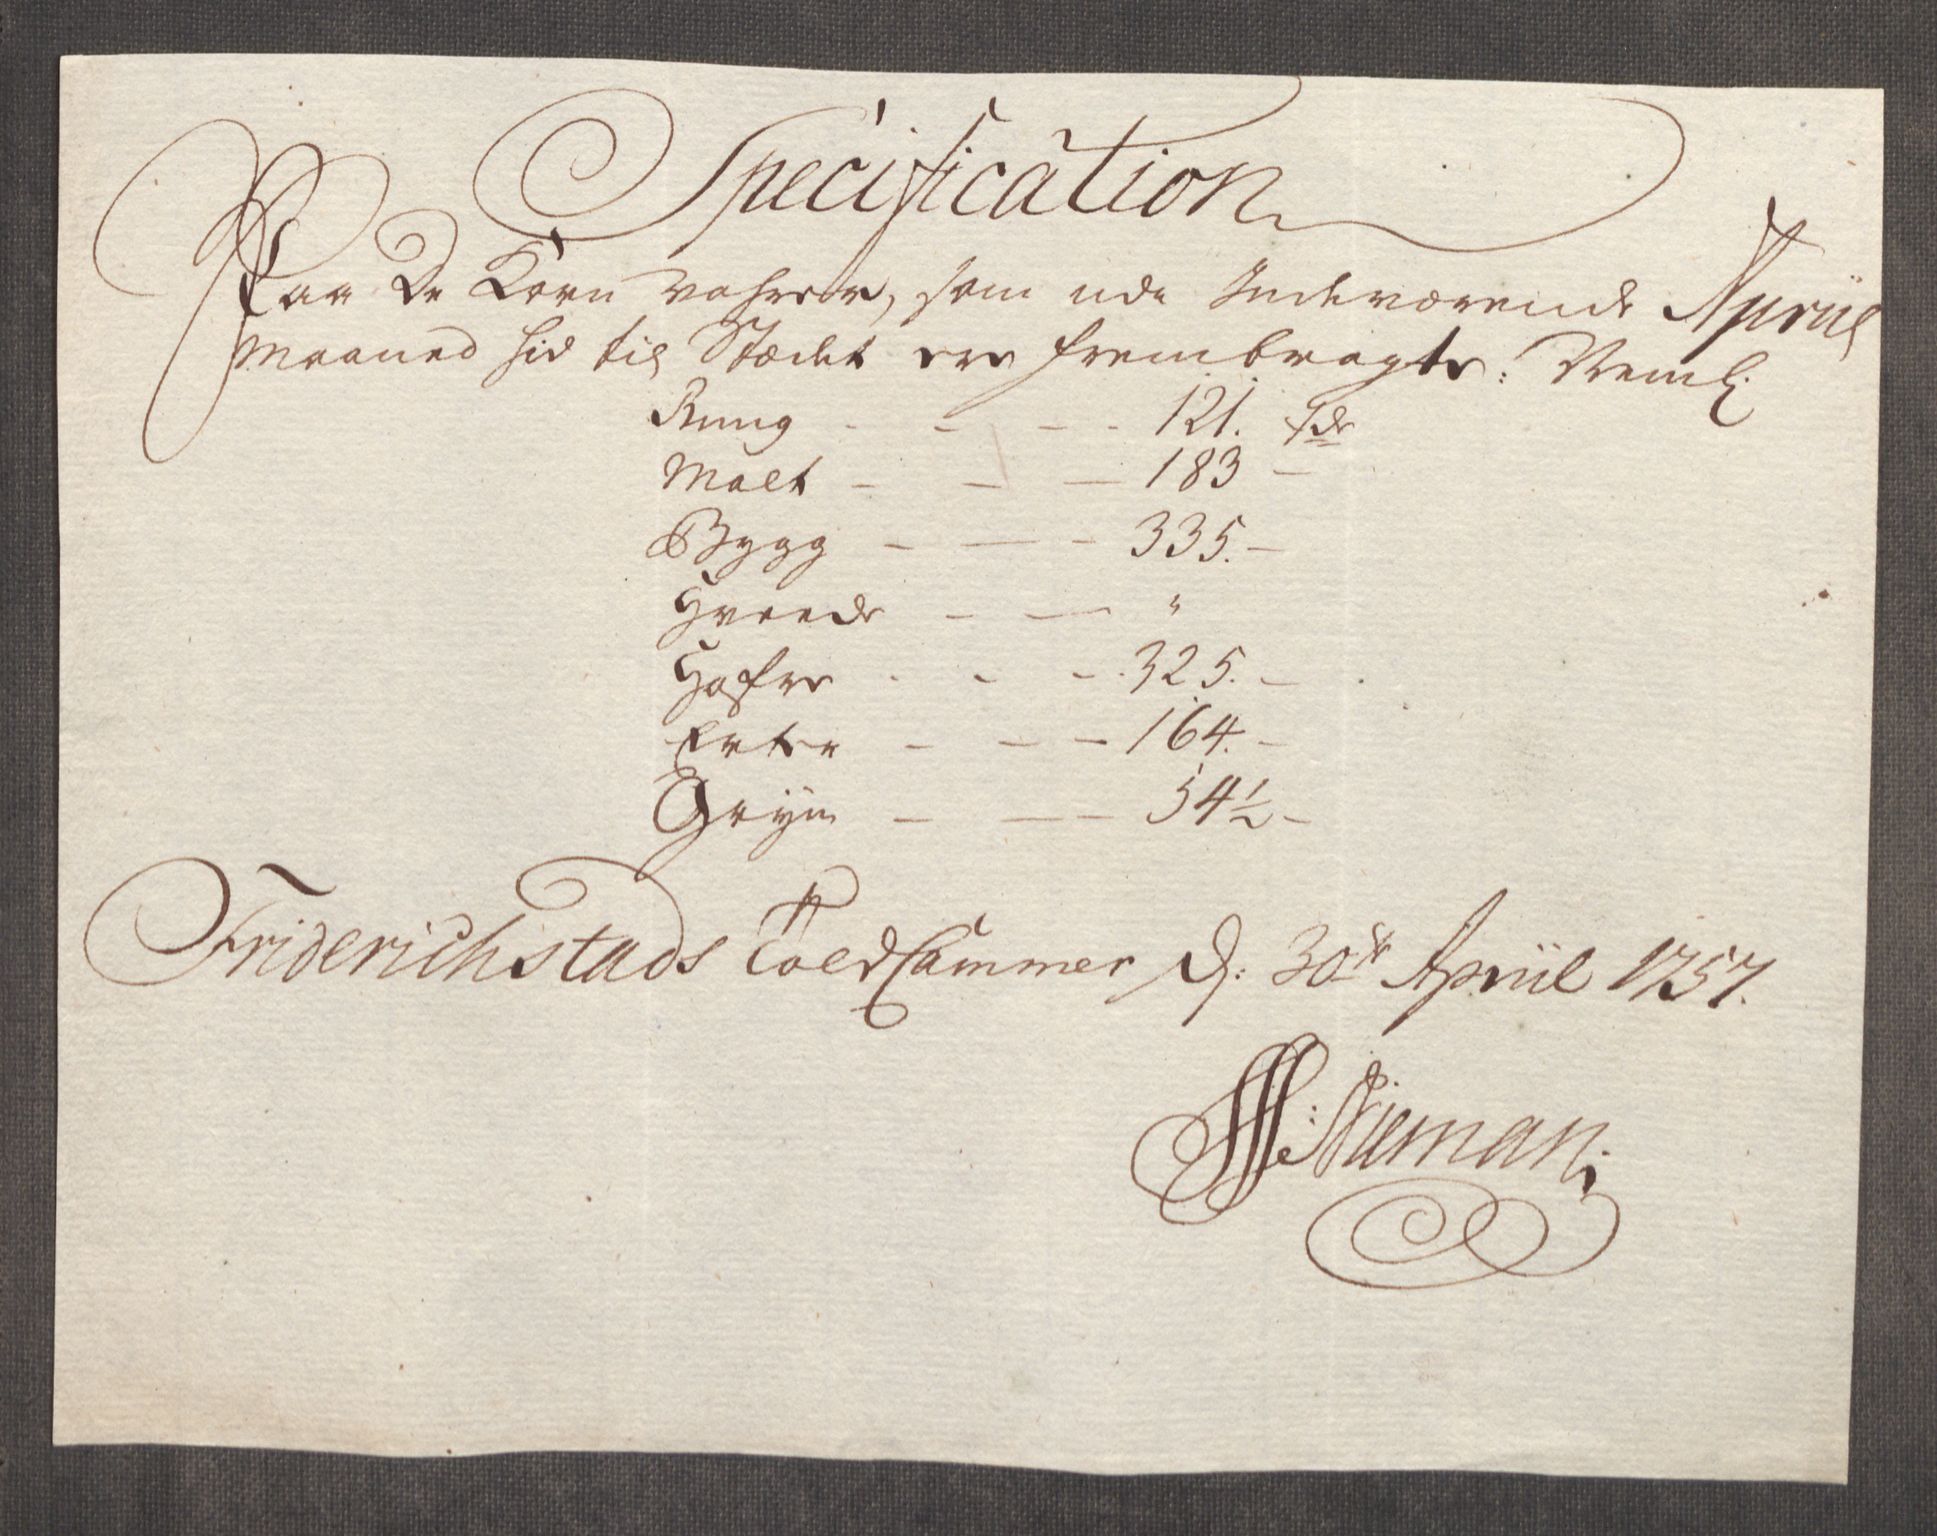 Specification
Paa De Korn vahrer, som udi Indeværende Apriil
Maaned hid til Stædet ere frembragte: Neml:
Rug - - - - 121. Tdr
Malt - - - 183 -
Bygg - - - 335. -
Hveede - - "
Hafre - - - 325. -
Erter - - - 164. -
Gryn - - - 54½ -
Friderichstads Told Cammer d: 30te Apriil 1757.
Nieman